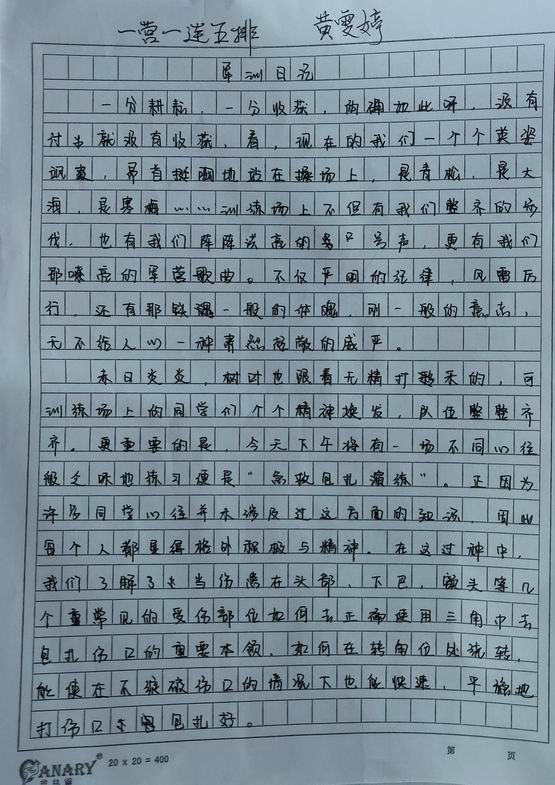 一营一连五排 黄雯婷
军训日记
一分耕耘,一分收获,的确如此呀,没有
付出就没有收获,看,现在的我们一个个英姿
飒爽,昂首挺胸地站在操场上,是青松,是大
海,是寒梅……训练场上不但有我们整齐的步
伐,也有我们阵阵洪亮的口号声,更有我们
那嘹亮的军营歌曲。不仅严明的纪律,风雷厉
行,还有那铁一般的体魄,刚一般的意志,
无不给人以一种肃然起敬的威严。
炎日炎炎,树叶也跟着无精打采的,可
训练场上的同学们个个精神焕发,队伍整整齐
齐。更重要的是,今天下午将有一场不同以往
般乏味地练习便是"急救包扎演练"。正因为
许多同学以往并未涉及过这方面的知识,因此
每个人都显得格外积极与精神。在这过神中,
我们了解了当伤患在头部、下巴、额头等几
个重常见的受伤部位如何去正确使用三角巾去
包扎伤口的重要本领,如何在转角位处流转,
能使在不狼破伤口的情况下也能快速,平施地
打伤口包扎好。
CANARY® 20 x 20 = 400
第 页